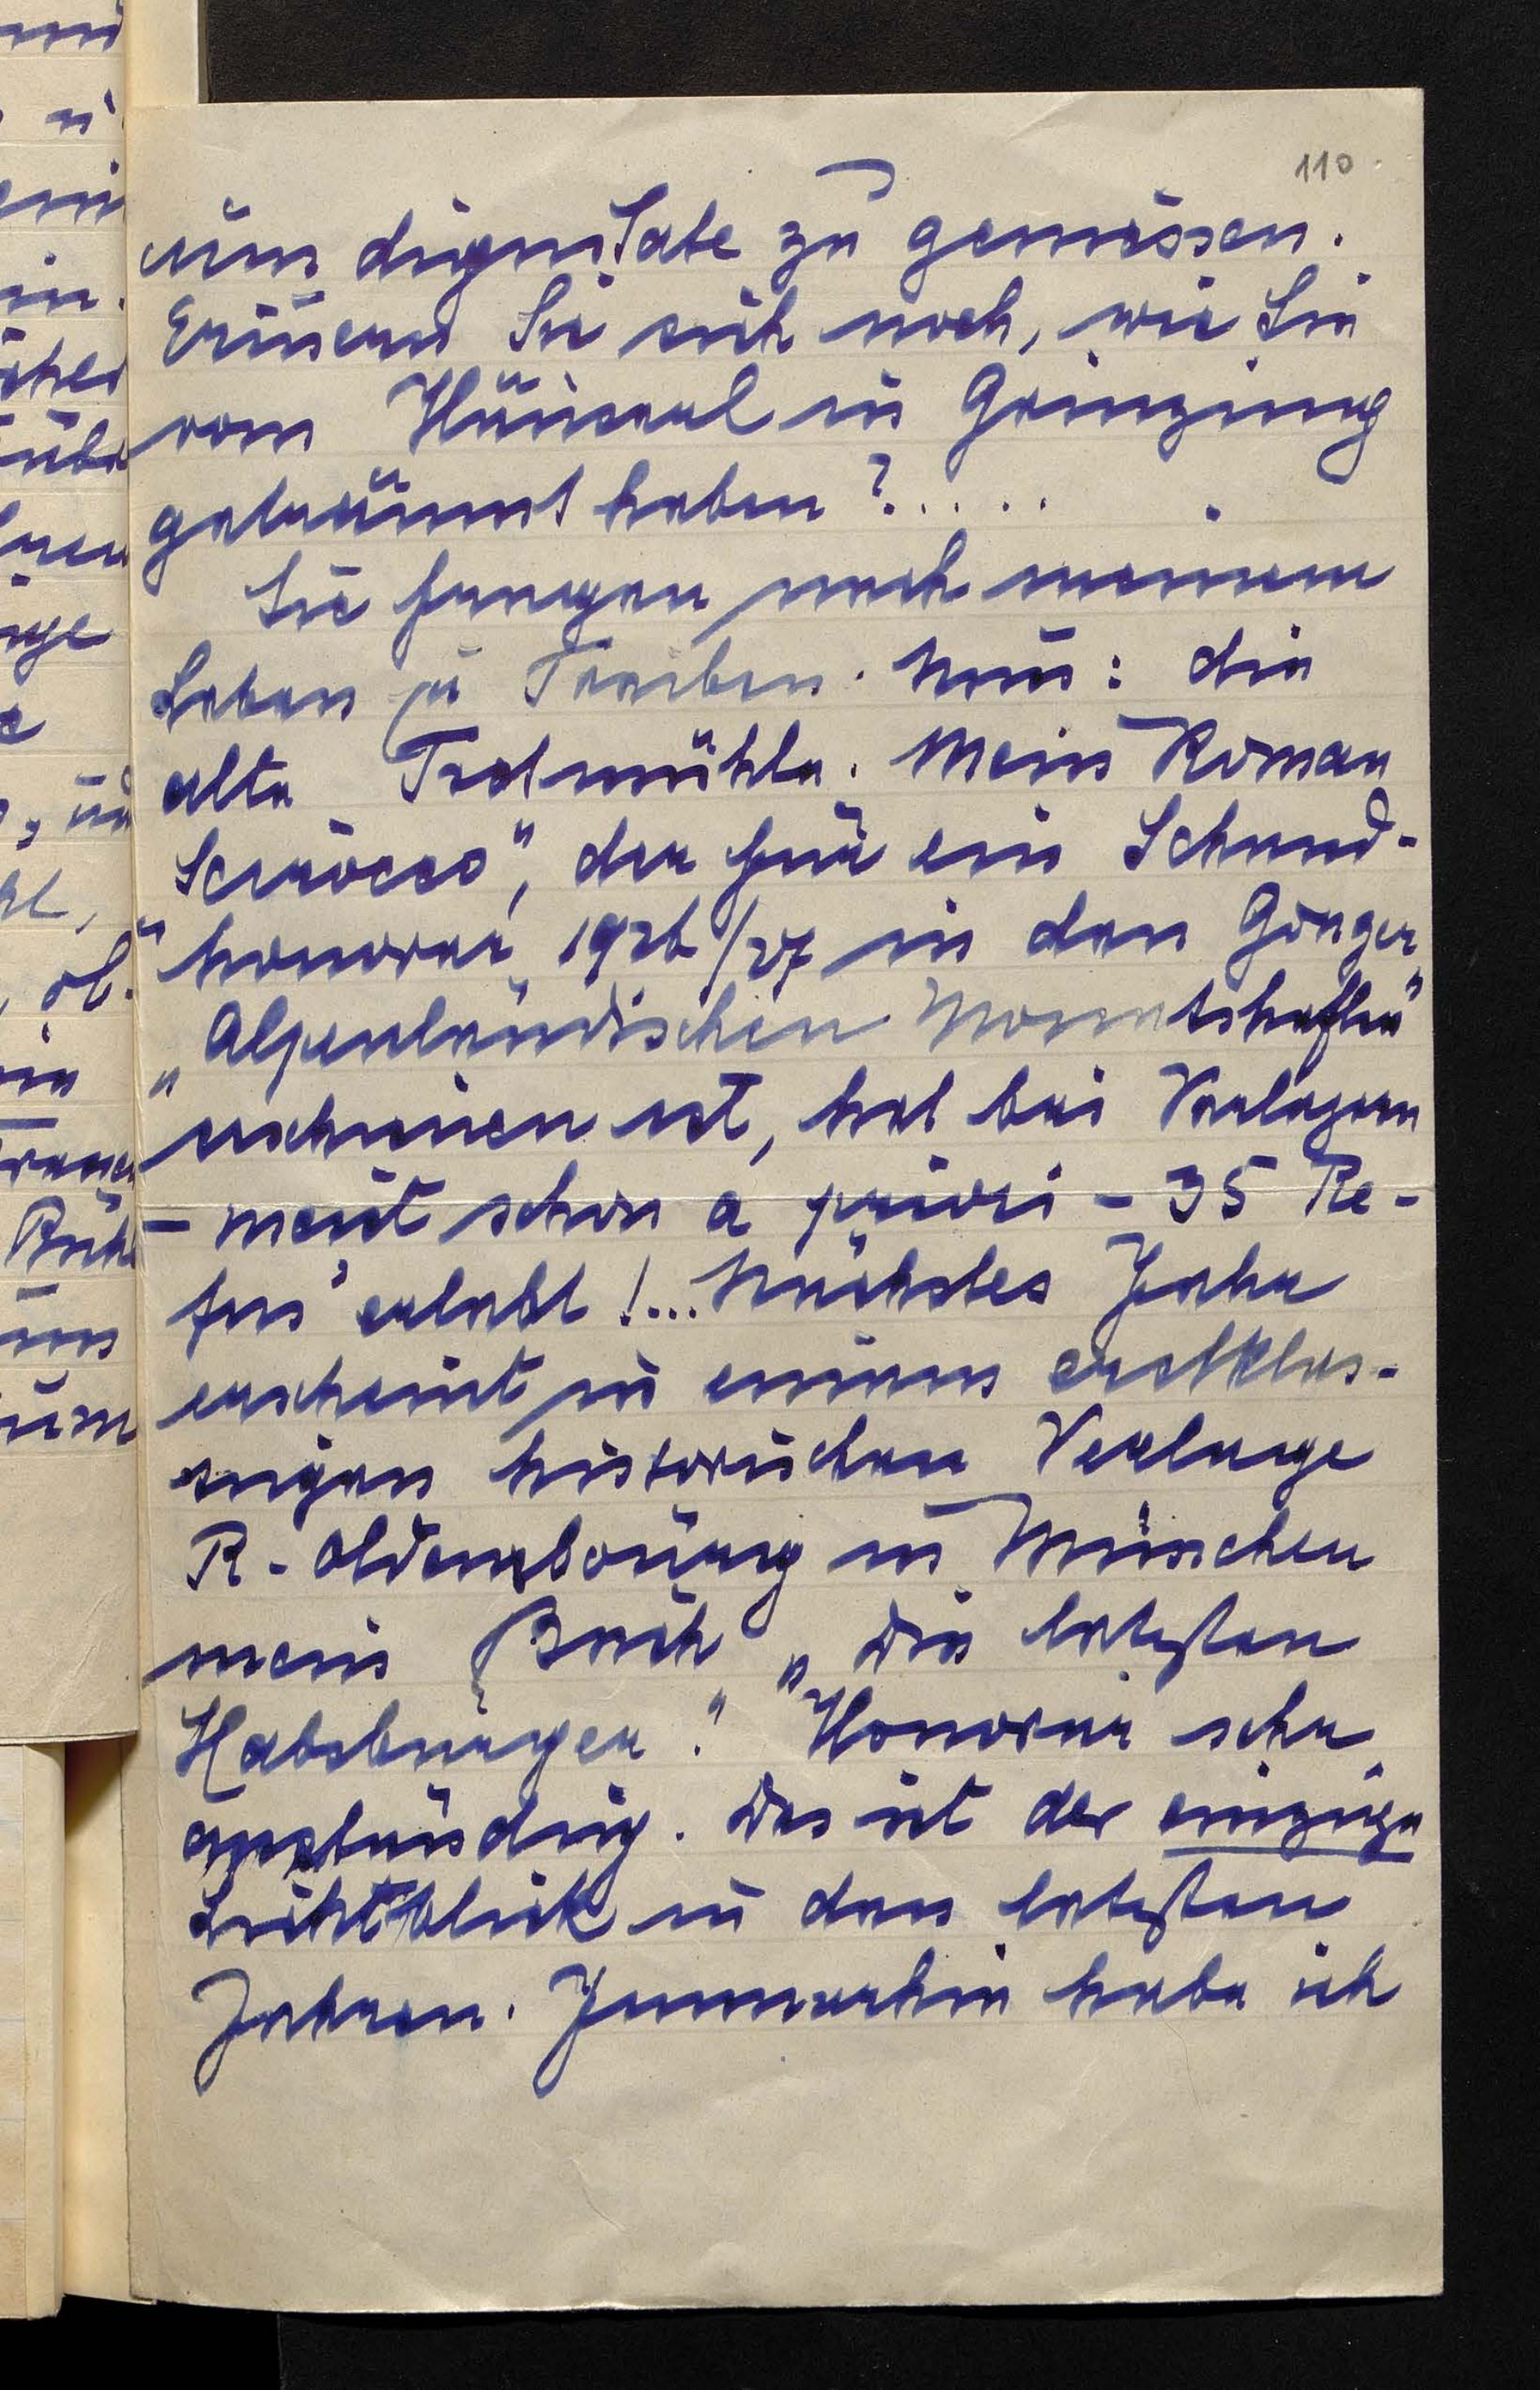 110
cum dignitate zu geniessen.
Erinnern Sie sich noch, wie Sie
vom Häuserl in Grinzing
geträumt haben?.....
Sie fragen nach meinem
Leben u Treiben. Nun: die
alte Tretmühle. Mein Roman
Scirocco", der für ein Schund-
honorar 1926/27 in den Grazer
„Alpenländischen Monatsheften"
erschienen ist, hat bei Verlegern
- meist schon a priori - 35 Re-
fus erlebt!... Nächstes Jahr
erscheint in einem erstklas-
sigen historischen Verlage
R. Oldenbourg in München
mein Buch „Die letzten
Habsburger." Honorar sehr
anständig. Das ist der einzige
Lichtblick in den letzten
Jahren. Immerhin habe ich